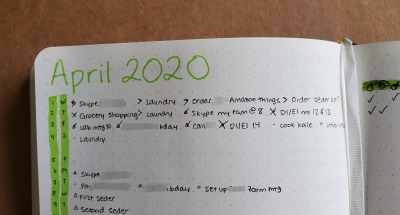 April 2020
1 W Skype > Laundry > Order Amazon things > Order seder
2 T × Grocery shopping > Laundry Skype my fam @ 8 × DI/EI
3 F Lab mtg 10 bday Call × DI/EI 14 cook kale
4 S Laundry
5 S
6 M Skype
7 T bday set up zoom mtg.
8 W First seder
9 T Second seder